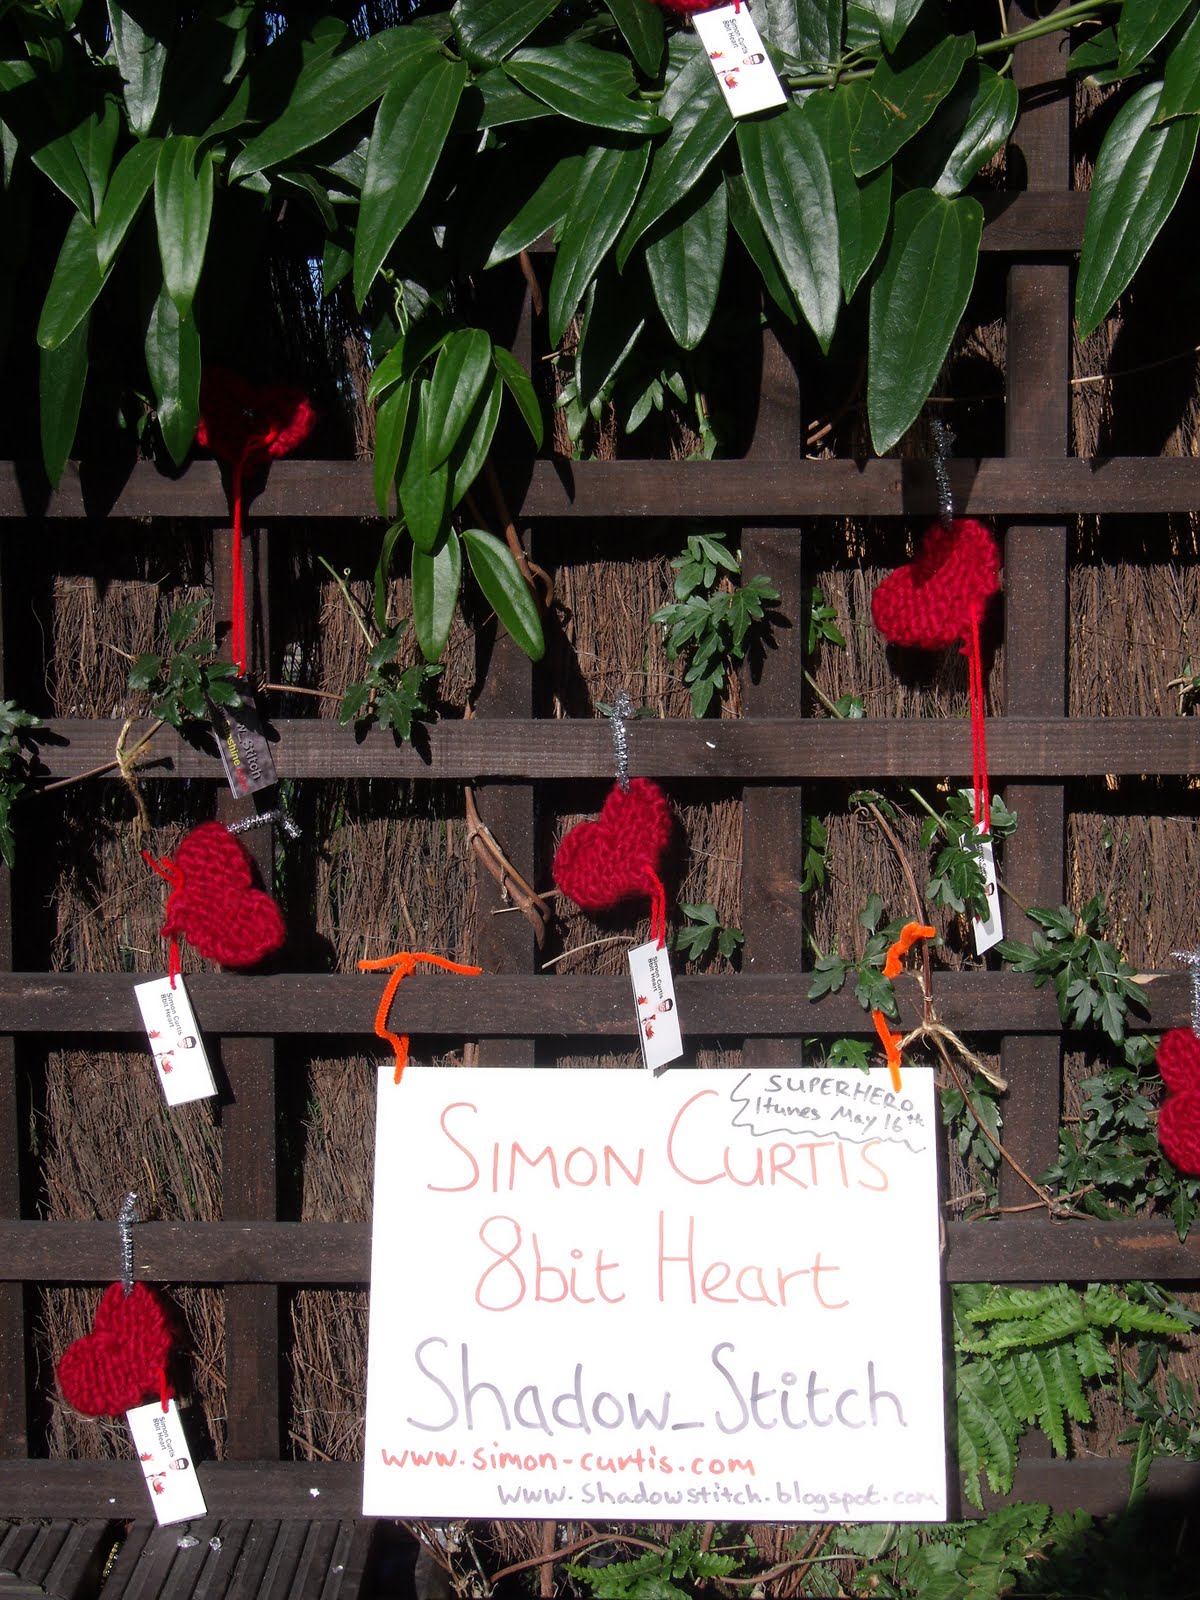 Simon Curtis
8bit Heart
Stitch
Simon Curtis
8bit Heart
Simon Curtis
8bit Heart
SUPERHERO
Itunes May 16th
SIMON CURTIS
8bit Heart
Shadow_Stitch
www.simon-curtis.com
www.shadowstitch.blogspot.com
Simon Curtis
8bit Heart